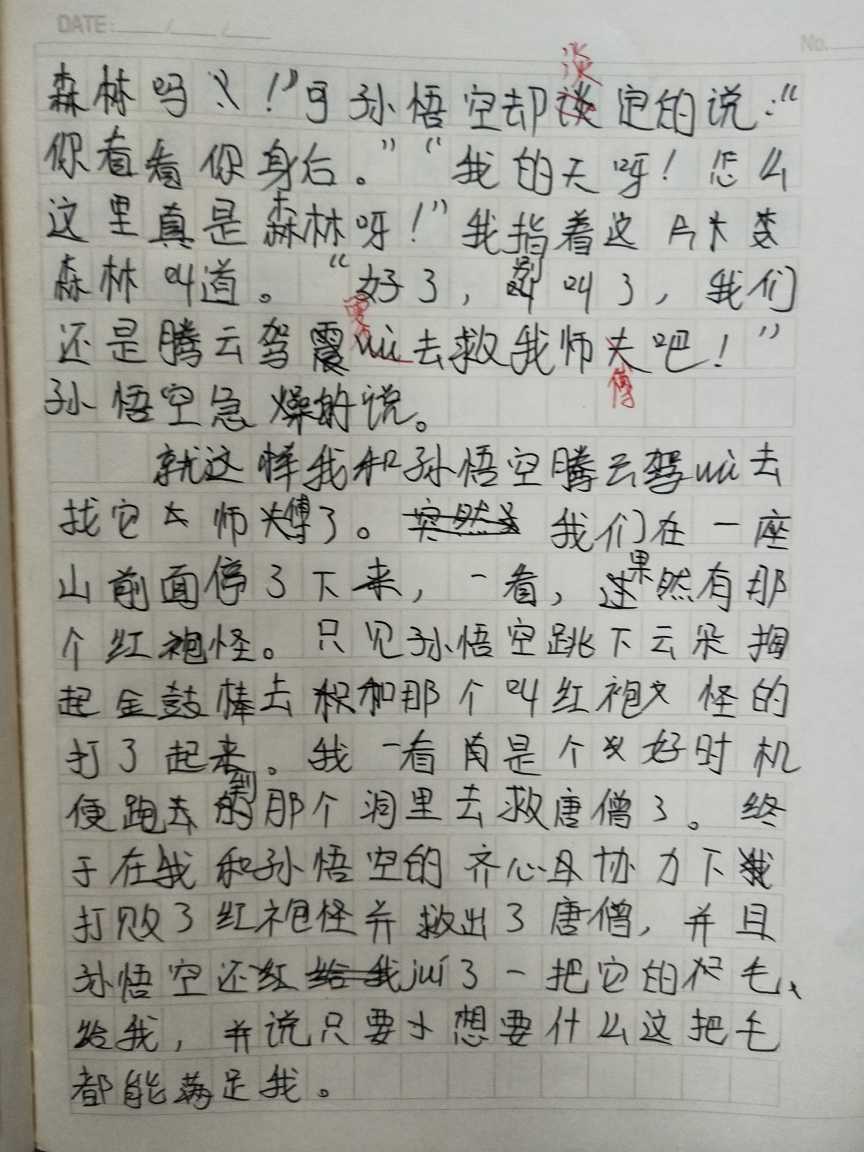 DATE: No.
森林吗？！”可孙悟空却淡定的说：“
你看看你身后。”“我的天呀！怎么
这里真是森林呀！”我指着这片大
森林叫道。“好了，别叫了，我们
还是腾云驾雾去救我师傅吧！”
孙悟空急燥的说。
就这样我和孙悟空腾云驾wù去
找它大师傅了。我们在一座
山前面停了下来，一看，果然有那
个红袍怪。只见孙悟空跳下云朵掏
起金鼓棒去和那个叫红袍怪的
打了起来。我一看肯是个好时机
便跑去到那个洞里去救唐僧了。终
于在我和孙悟空的齐心协力下
打败了红袍怪并救出了唐僧，并且
孙悟空还jiū了一把它的猴毛、
给我，并说只要想要什么这把毛
都能满足我。